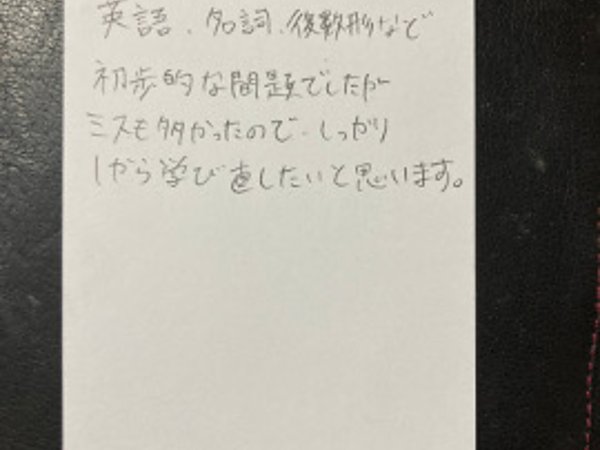 英語、名詞、複数形などで
初歩的な問題でしたが
ミスも多かったので、しっかり
1から学び直したいと思います。